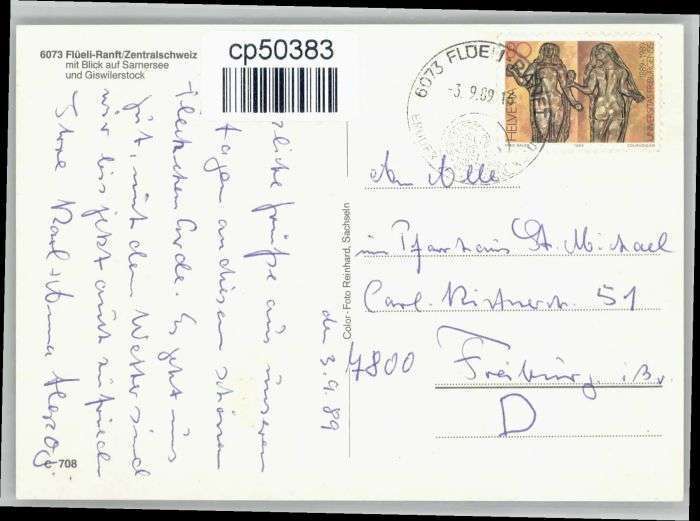 6073 Flüeli-Ranft/Zentralschweiz
mit Blick auf Sarnersee
und Giswilerstock
cp50383
6073 FLÜELI-RANFT
-3. 9.89 18
80
HELVETIA
1889-1989
UNIVERSITAS FRIBURGENSIS
1989
COURVOISIER
den 3.9.89
Grüße aus unseren
tagen an diesem schönen
Fleckchen Erde. Es geht uns
gut, mit dem Wetter sind
wir bis jetzt auch zufrieden
Ihre Karl + Anna Herzog
Color-Foto Reinhard, Sachseln
An Alle
im Pfarrhaus St. Michael
Carl-Kistnerstr. 51
7800 Freiburg i. Br.
D
C 708